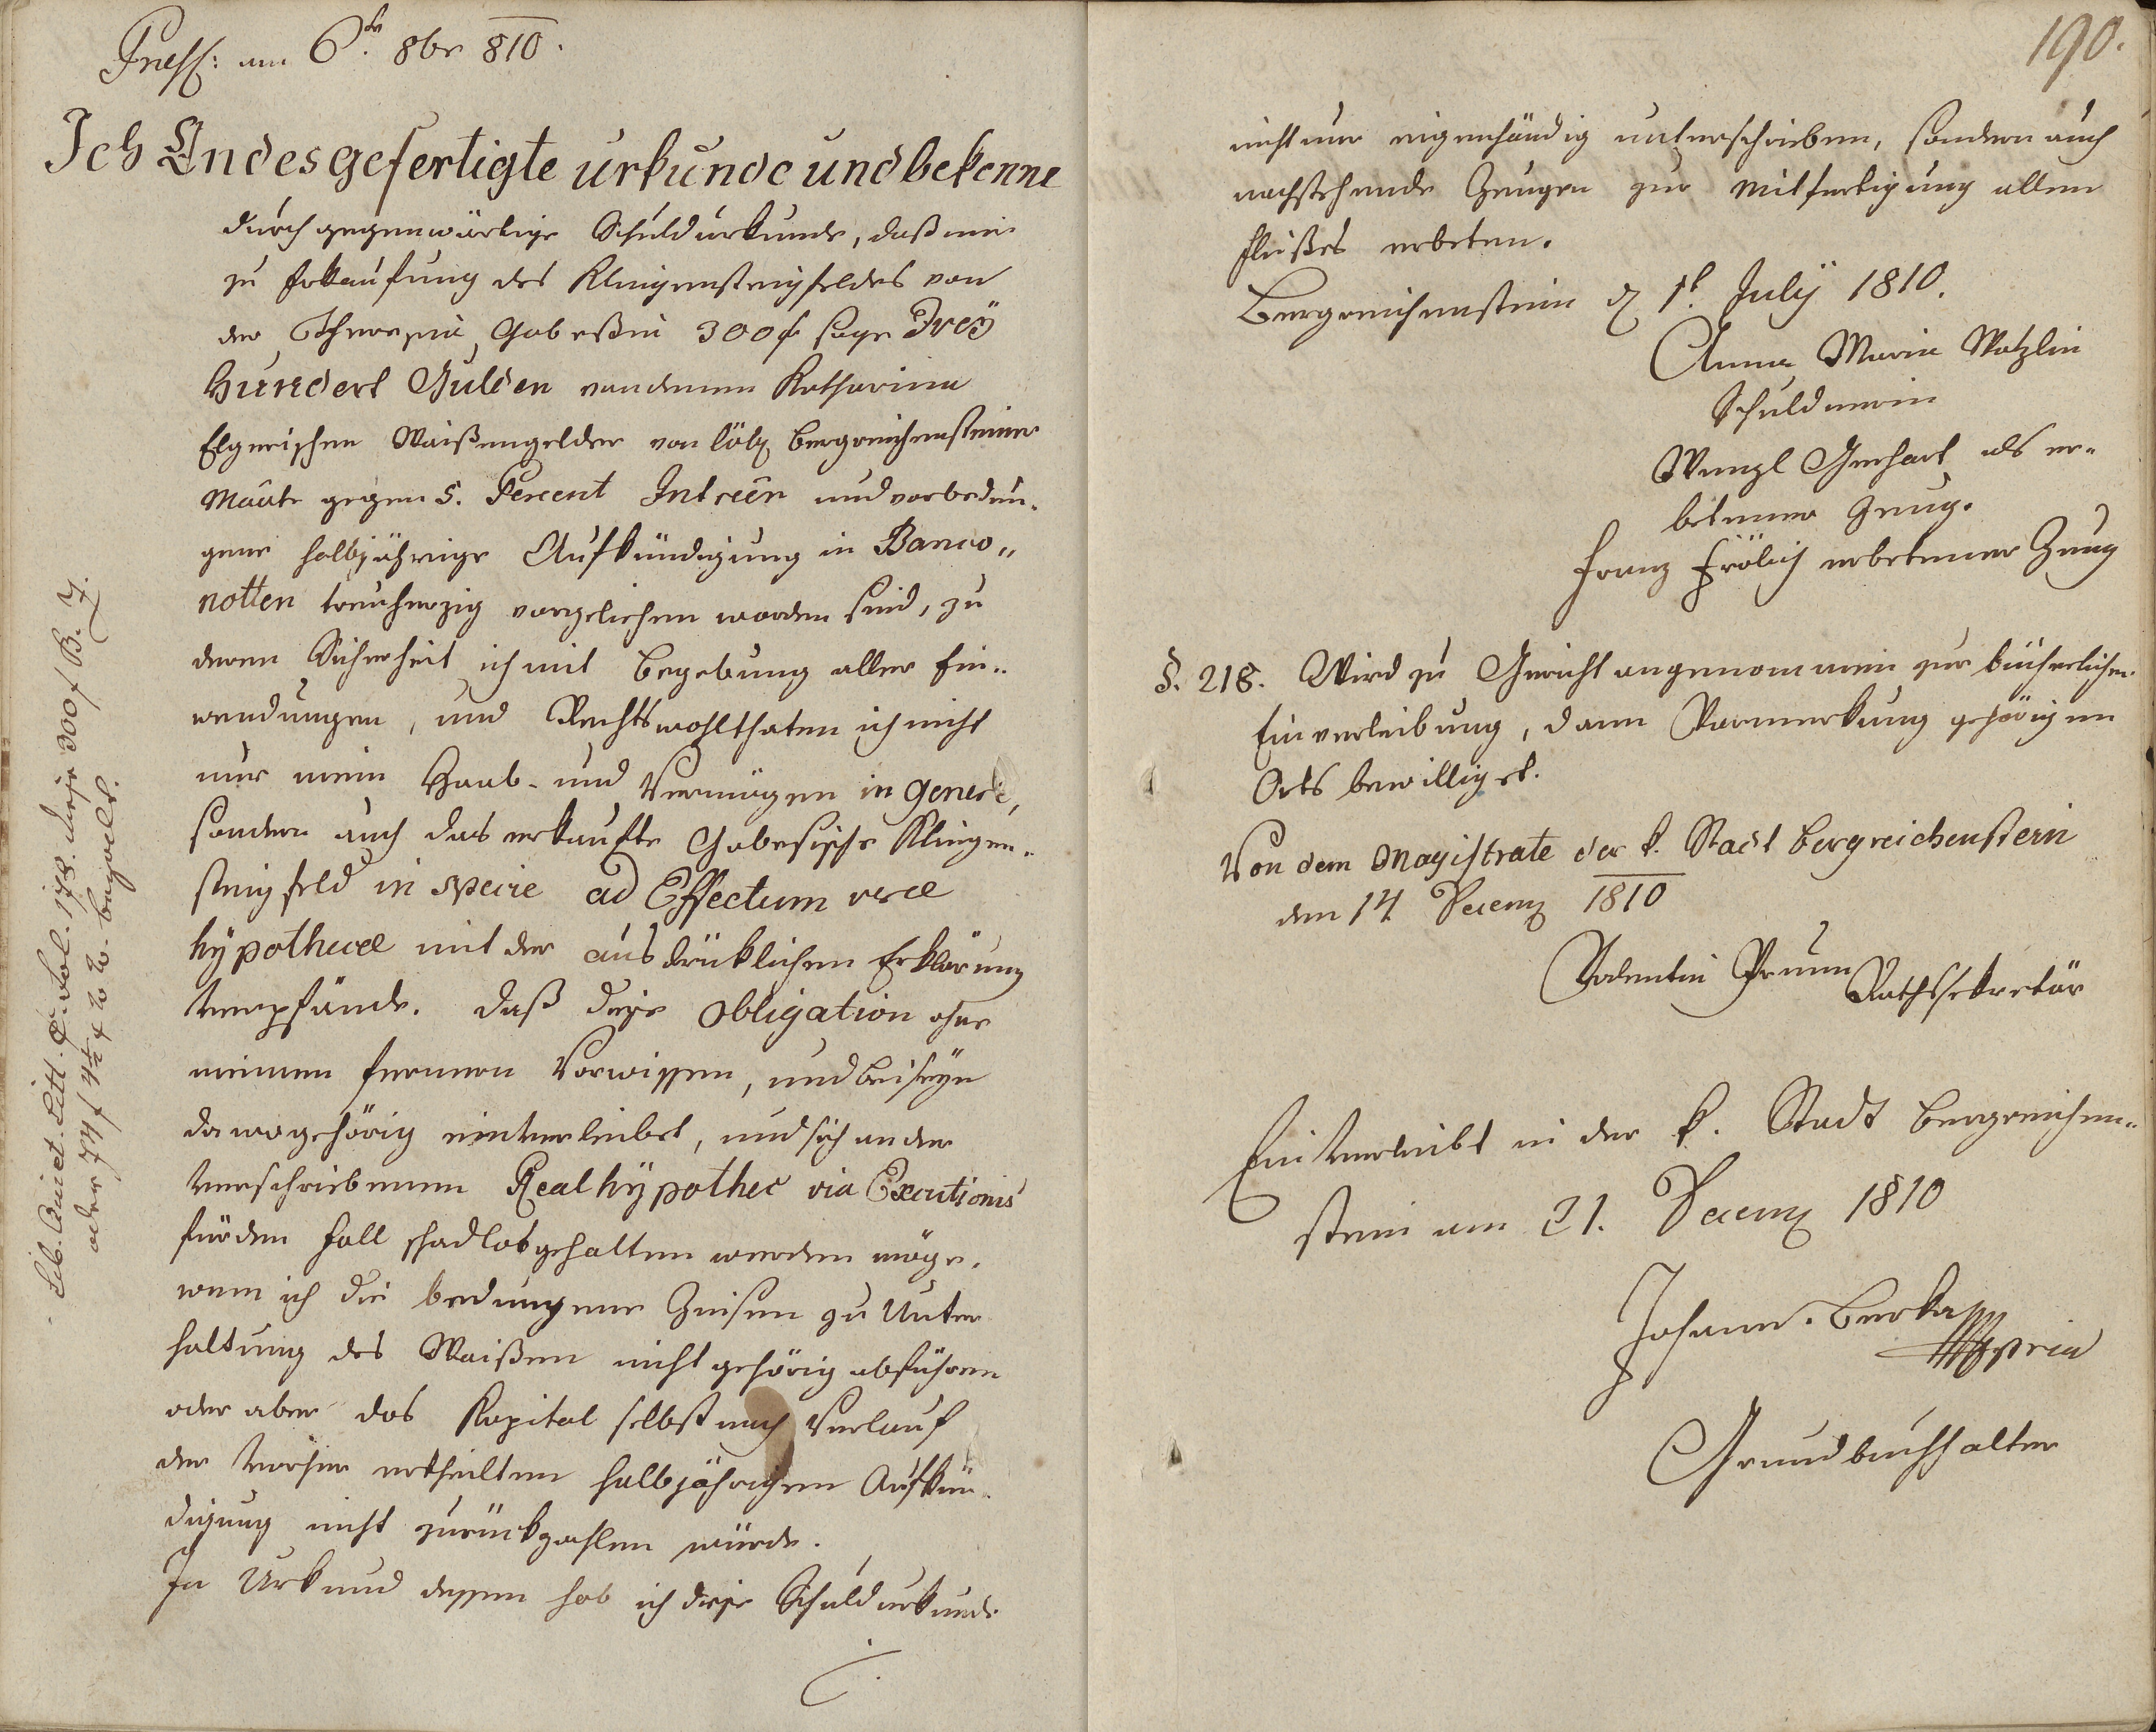 Pres: am 6ten 8br 810.
Ich Endesgefertigte urkunde und bekenne
durch gegenwärtige Schuldurkunde, daß mir
zu Erkaufung des Klingensteigfeldes von
der Theresia Gabeßin 300 f sage Drey
Hundert Gulden von denen Katharina
Elgerischen Waißengelder von löbl Bergreichensteiner
Waißen gegen 5. Percent Intreßen und vorbedun-
gener halbjähriger Aufkündigung in Banco„
notten treuherzig vorgeliehen worden sind, zu
deren Sicherheit ich mit Begebung aller Ein-
wendungen, und Rechtswohlthaten ich nicht
nur mein Haab- und Vermögen in genere,
sondern auch das erkaufte Gabesische Klingen-
steigfeld in specie ad Effectum veræ
hypothecæ mit der ausdrüklichen Erklärung
verpfände. daß diese Obligation ohne
meinem fernern Vorwissen, und Beiseyn
da wo gehörig einverleibet, und sich an der
verschriebenen Realhypothec via Executionis
für den Fall schadlos gehalten werden möge.
wenn ich die bedungene Zinsen zu Unter
haltung des Waißen nicht gehörig abführen
oder aber das Kapital selbst nach Verlauf
der vorher ertheilten halbjährigen Aufkün-
digung nicht zurückzahlen würde.
In Urkund dessen hab ich diese Schuldurkunde
Lib. Quiet. Litt. Fol. 178. diese 300 f B. Z.
oder 74 f 4 1/2 x W. W. bezahlt.
190.
nicht nur eigenhändig unterschrieben, sondern auch
nachstehende Zeugen zur Mitfertigung allen
Fleißes erbeten.
Bergreichenstein d 1t July 1810.
Anna Maria Watzlin
Schuldnerin
Wenzl Gerhart als er-
betener Zeug.
Franz Frölich erbetener Zeug
§. 218. Wird zu Gericht angenommen zur bücherlichen
Einverleibung, dann Vormerkung gehörigen
Orts bewilliget.
Von dem Magistrate der k. Stadt Bergreichenstein
den 14 Decemb 1810
Valentin Prunn Rathssekretär
Einverleibt in der k. Stadt Bergreichen-
stein am 21. Decemb 1810
Johann Berka
mpria
Grundbuchhalter